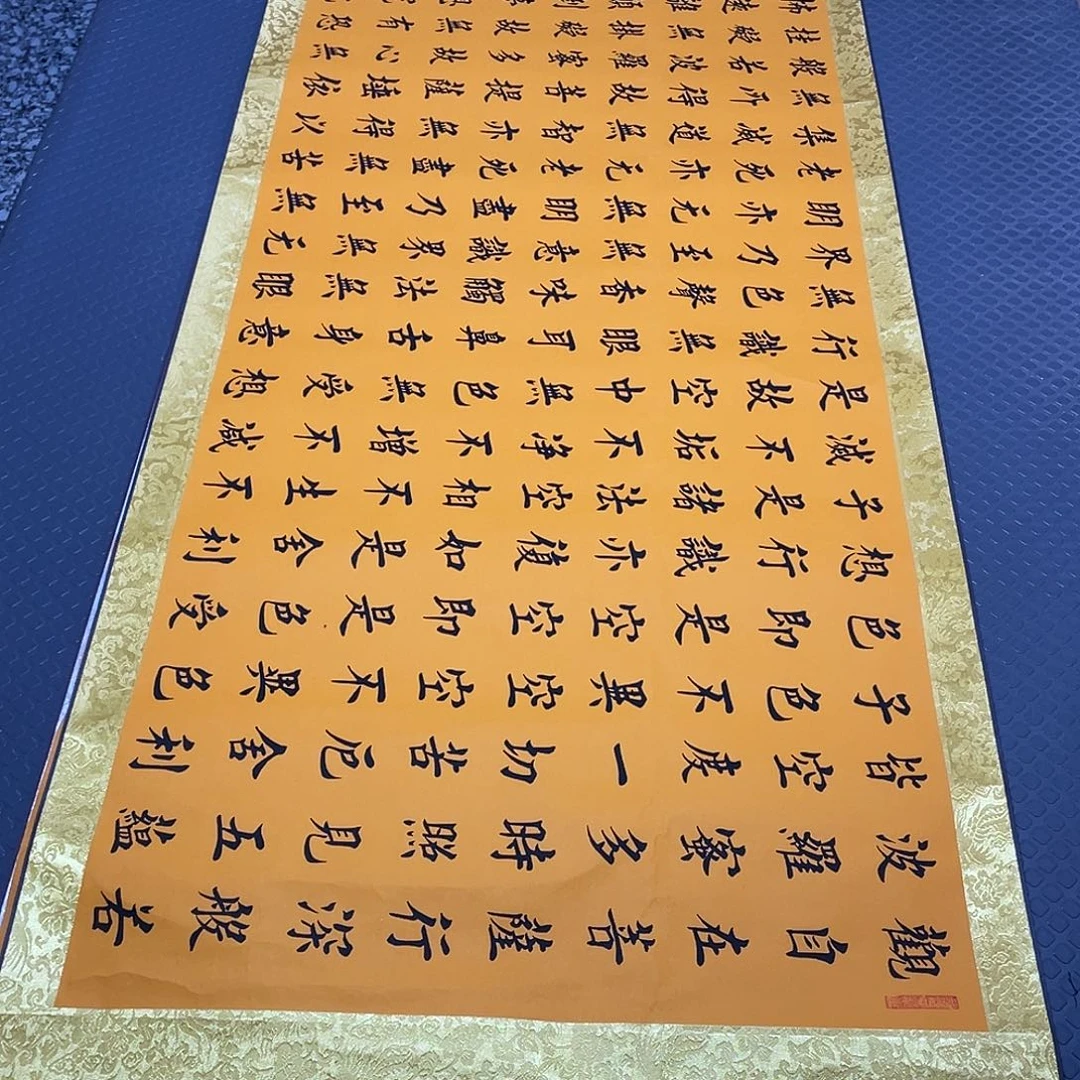 觀自在菩薩行深般若
波羅蜜多時照見五蘊
皆空度一切苦厄舍利
子色不異空空不異色
色即是空空即是色受
想行識亦復如是舍利
子是諸法空相不生不
滅不垢不净不增不減
是故空中無色無受想
行識無眼耳鼻舌身意
無色聲香味觸法無眼
界乃至無意識界無无
明亦无無明盡乃至無
老死亦无老死盡無苦
集滅道無智亦無得以
無所得故菩提薩埵依
般若波羅蜜多故心無
挂礙無掛礙故無有恐